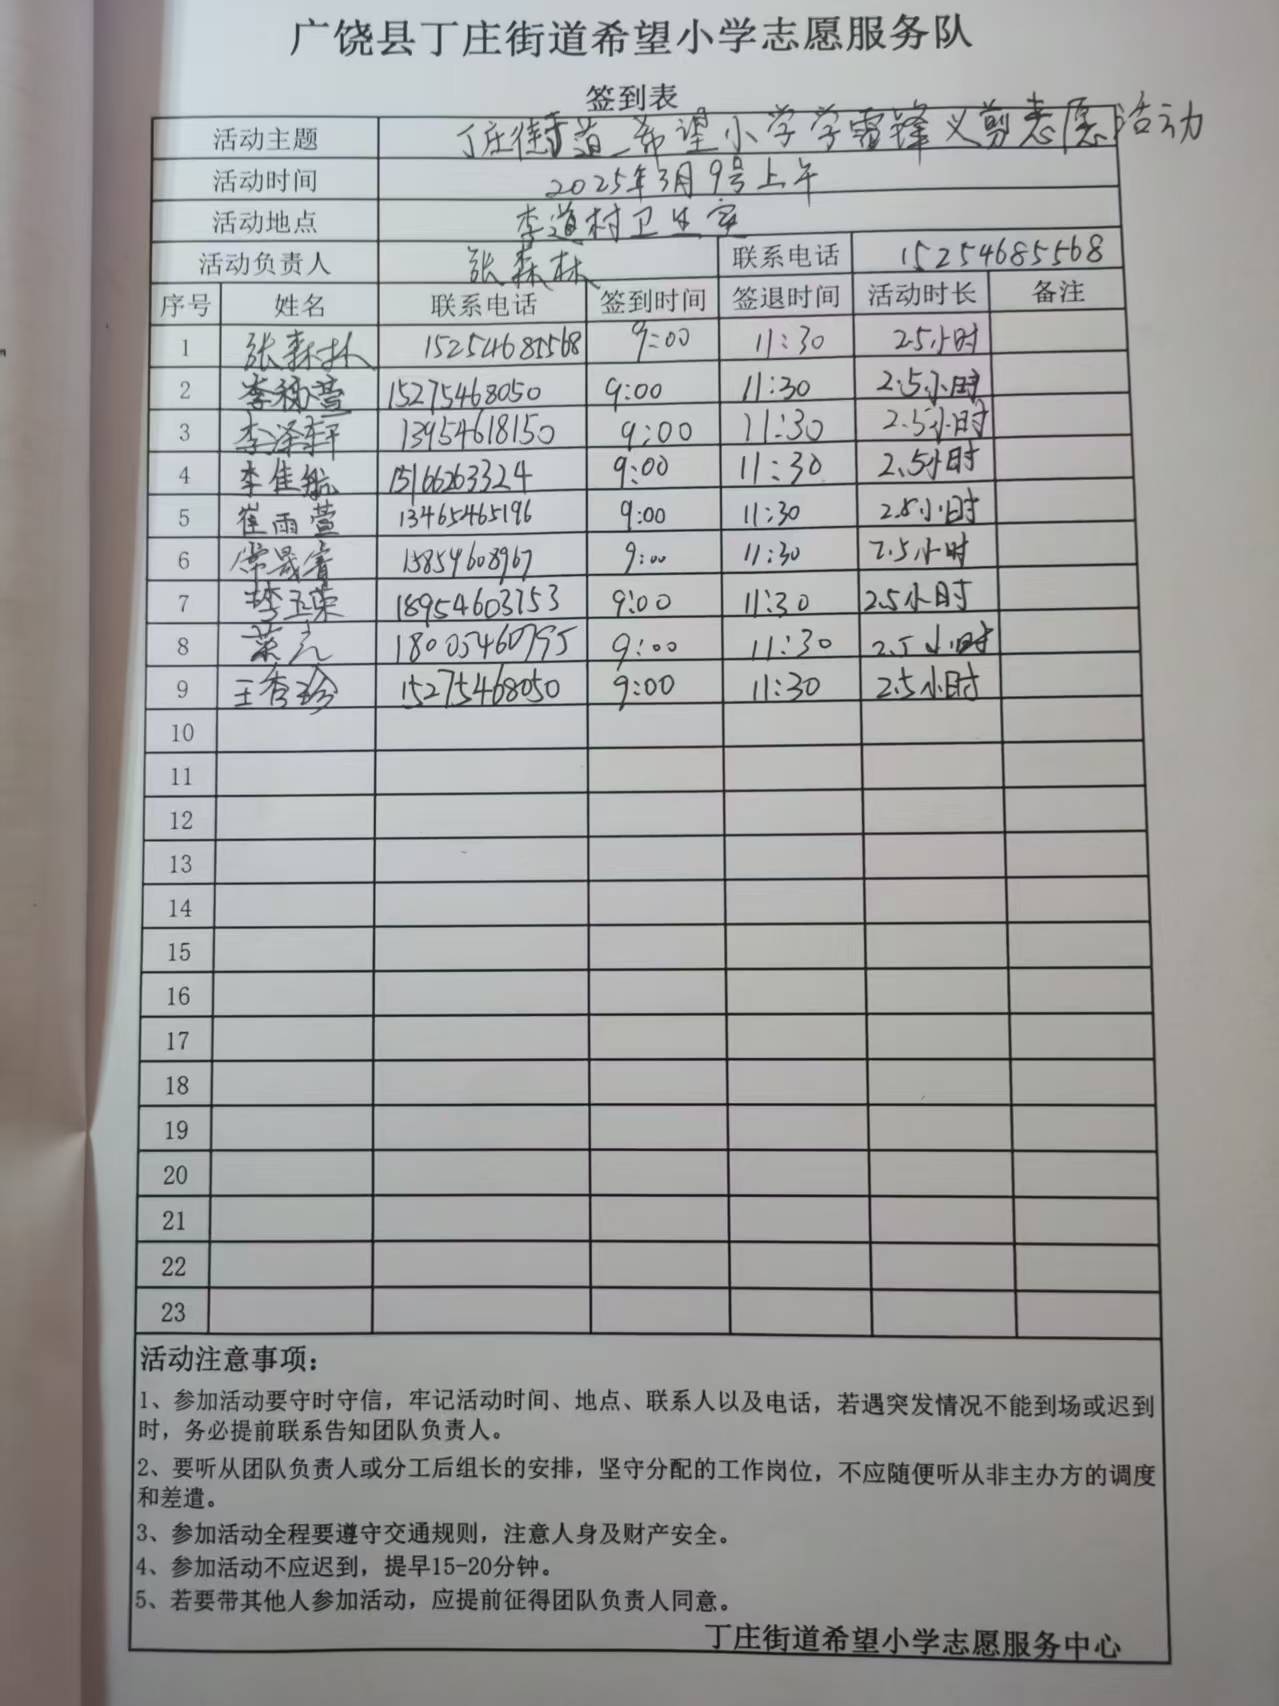 广饶县丁庄街道希望小学志愿服务队
签到表
活动主题 丁庄街道希望小学学雷锋义剪志愿活动
活动时间 2025年3月9号上午
活动地点 李道村卫生室
活动负责人 张森林 联系电话 15254685568
序号 姓名 联系电话 签到时间 签退时间 活动时长 备注
1 张森林 15254685568 9:00 11:30 2.5小时
2 李 萱 15275468050 9:00 11:30 2.5小时
3 李泽轩 13954618150 9:00 11:30 2.5小时
4 李佳航 15166263324 9:00 11:30 2.5小时
5 崔雨萱 13465465196 9:00 11:30 2.5小时
6 常晟睿 15854608967 9:00 11:30 2.5小时
7 李玉荣 18954603753 9:00 11:30 2.5小时
8 18005460795 9:00 11:30 2.5小时
9 王秀珍 15275468050 9:00 11:30 2.5小时
10
11
12
13
14
15
16
17
18
19
20
21
22
23
活动注意事项：
1、参加活动要守时守信，牢记活动时间、地点、联系人以及电话，若遇突发情况不能到场或迟到
时，务必提前联系告知团队负责人。
2、要听从团队负责人或分工后组长的安排，坚守分配的工作岗位，不应随便听从非主办方的调度
和差遣。
3、参加活动全程要遵守交通规则，注意人身及财产安全。
4、参加活动不应迟到，提早15-20分钟。
5、若要带其他人参加活动，应提前征得团队负责人同意。
丁庄街道希望小学志愿服务中心